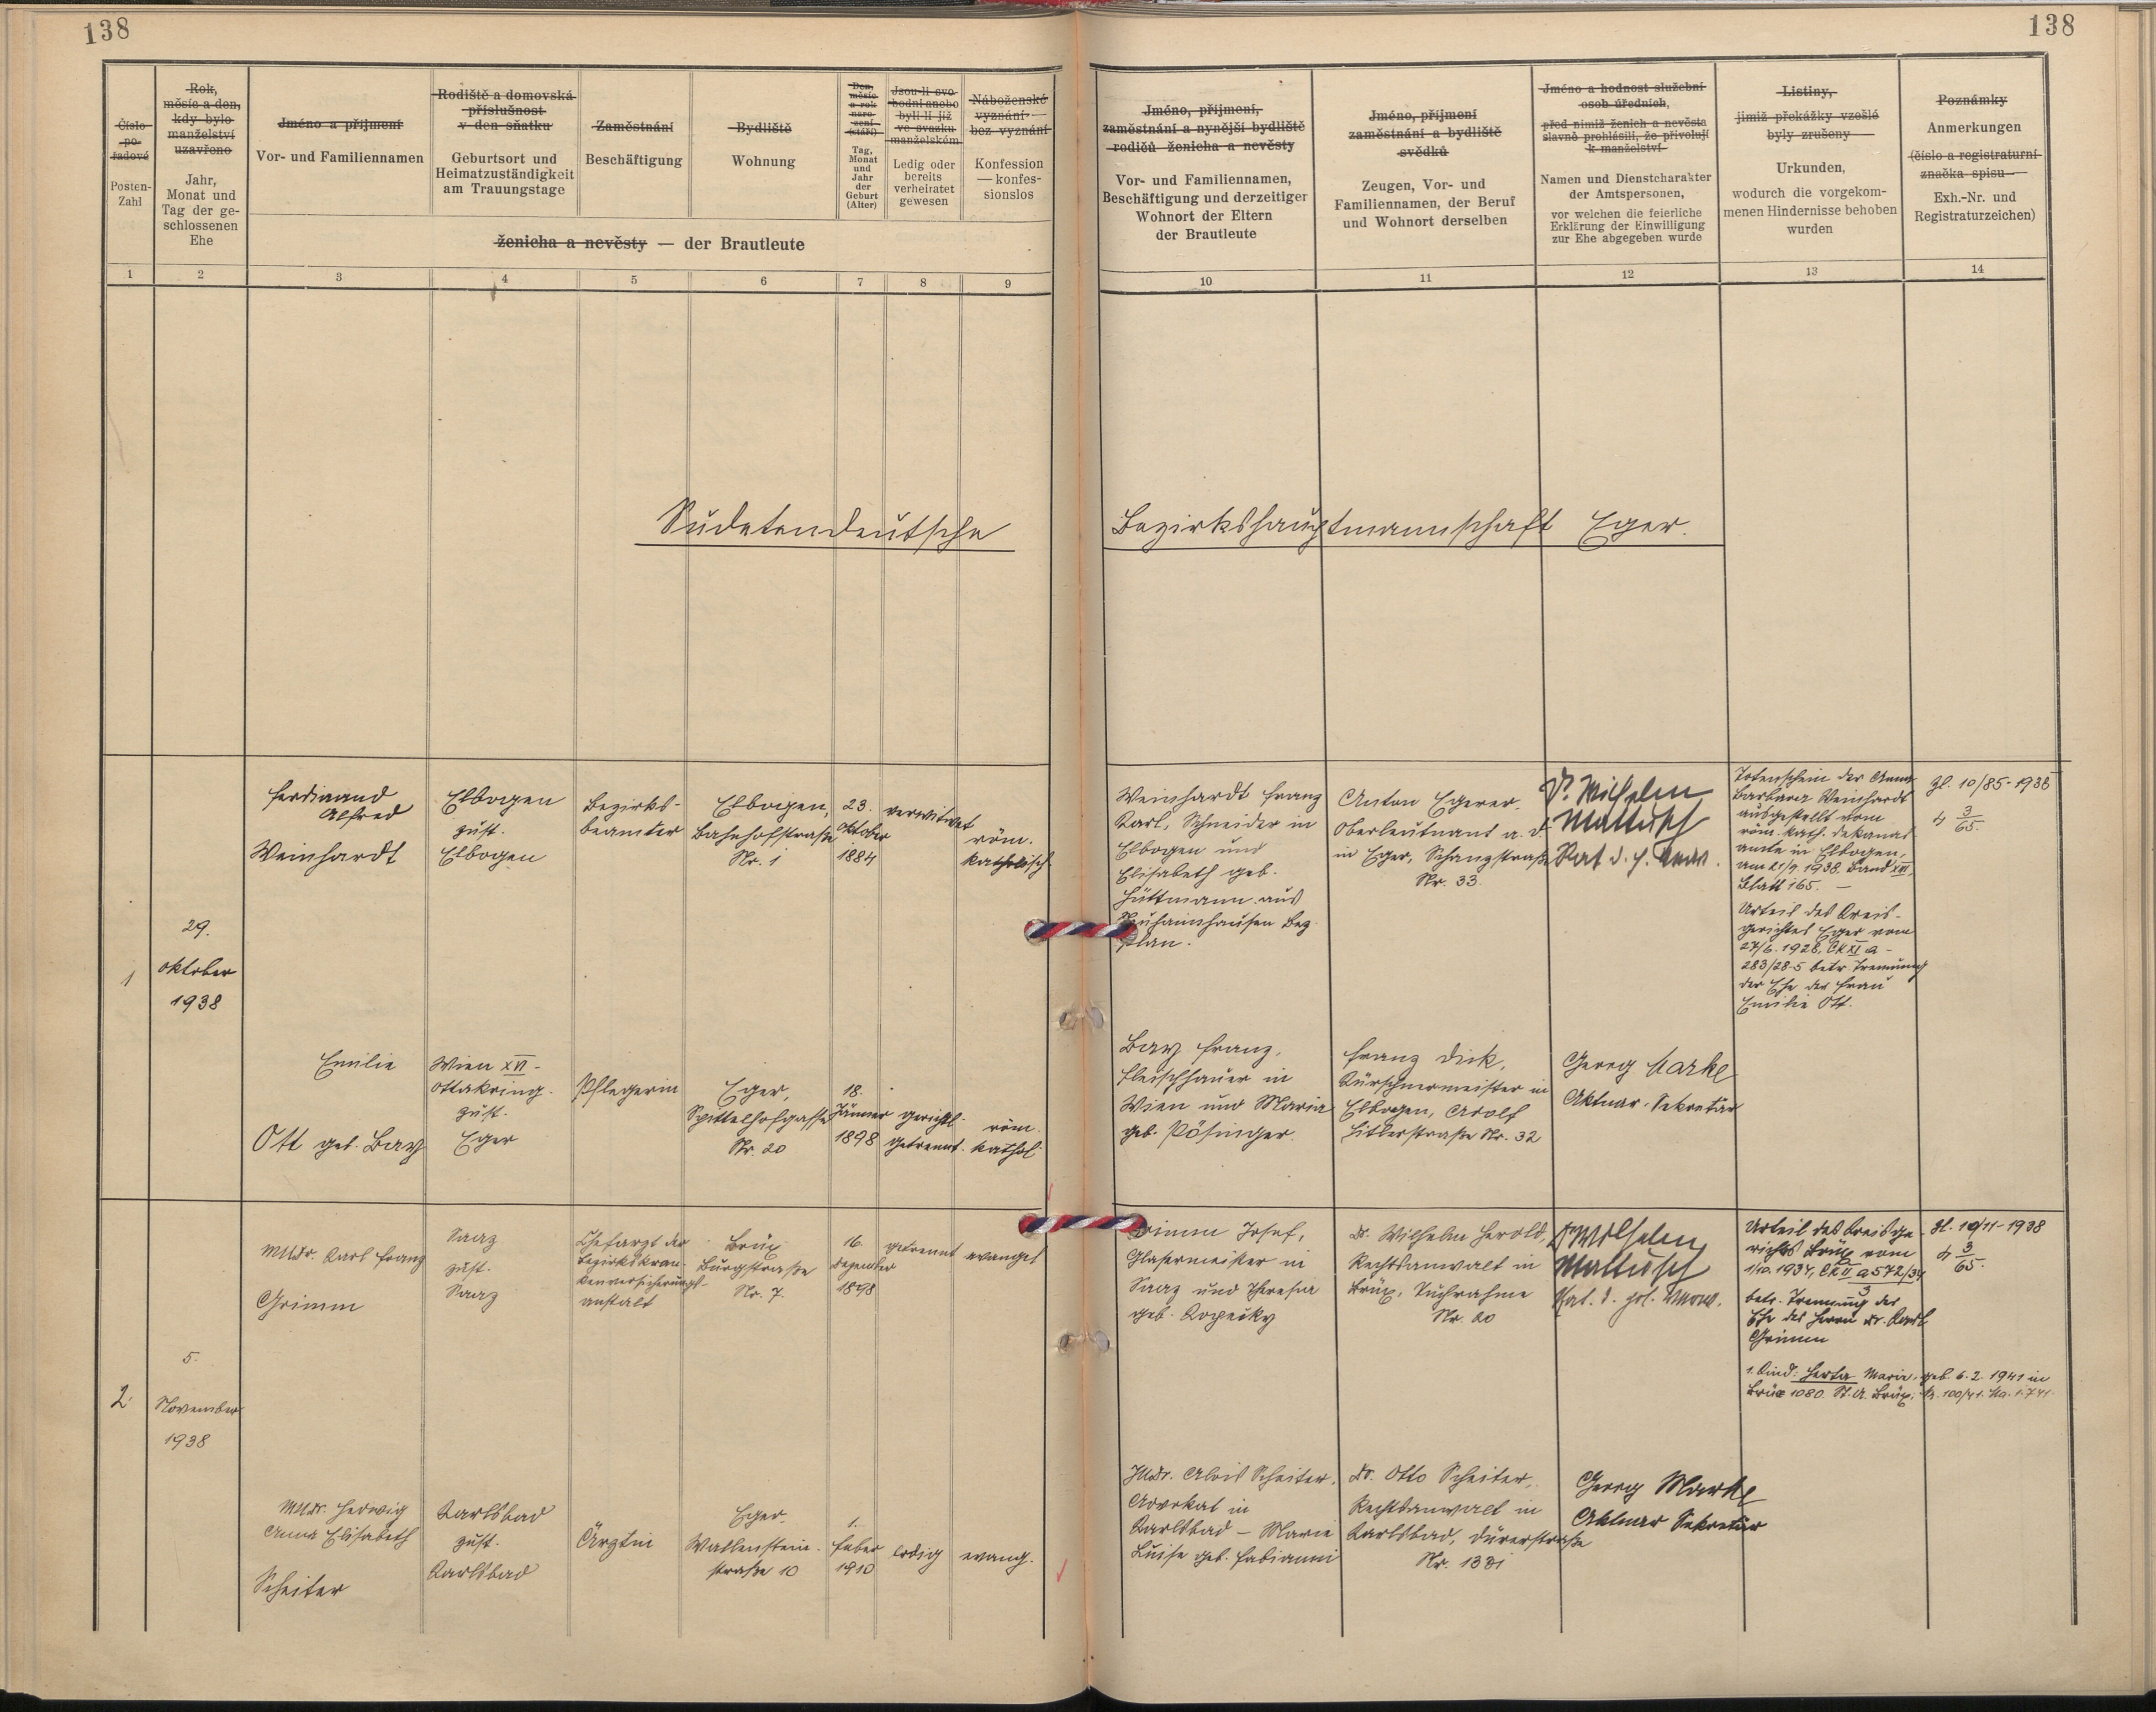 138
138
Číslo
po
řadové
Posten-
Zahl
Rok,
měsíc a den,
kdy bylo
manželství
uzavřeno
Jahr,
Monat und
Tag der ge-
schlossenen
Ehe
Jméno a příjmení
Vor- und Familiennamen
Rodiště a domovská
příslušnost
v den sňatku
Geburtsort und
Heimatzuständigkeit
am Trauungstage
Zaměstnání
Beschäftigung
Bydliště
Wohnung
Den,
měsíc
a rok
naro-
zení
(stáří)
Tag,
Monat
und
Jahr
der
Geburt
(Alter)
Jsou-li svo-
bodní anebo
byli-li již
ve svazku
manželském
Ledig oder
bereits
verheiratet
gewesen
Náboženské
vyznání —
bez vyznání
Konfession
— konfes-
sionslos
ženicha a nevěsty — der Brautleute
Jméno, příjmení,
zaměstnání a nynější bydliště
rodičů ženicha a nevěsty
Vor- und Familiennamen,
Beschäftigung und derzeitiger
Wohnort der Eltern
der Brautleute
Jméno, příjmení
zaměstnání a bydliště
svědků
Zeugen, Vor- und
Familiennamen, der Beruf
und Wohnort derselben
Jméno a hodnost služební
osob úředních,
před nimiž ženich a nevěsta
slavně prohlásili, že přivolují
k manželství
Namen und Dienstcharakter
der Amtspersonen,
vor welchen die feierliche
Erklärung der Einwilligung
zur Ehe abgegeben wurde
Listiny,
jimiž překážky vzešlé
byly zrušeny
Urkunden,
wodurch die vorgekom-
menen Hindernisse behoben
wurden
Poznámky
Anmerkungen
(číslo a registraturní
značka spisu —
Exh.-Nr. und
Registraturzeichen)
1 2 3 4 5 6 7 8 9 10 11 12 13 14
Sudetendeutsche Bezirkshauptmannschaft Eger.
1
29.
Oktober
1938
Ferdinand
Alfred
Weinhardt
Elbogen
zust.
Elbogen
Bezirks-
beamter
Elbogen,
Bahnhofstraße
Nr. 1
23.
Oktober
1884
verwitwet
röm.
katholisch
Weinhardt Franz
Karl, Schneider in
Elbogen und
Elisabeth geb.
Hüttmann aus
Plan.
Anton Egerer,
Oberleutnant a. d.
in Eger, Schanzstraße
Nr. 33.
Dr. Wilhelm
Mattusch
Rat d. p. Verw.
Totenschein der Anna
Barbara Weinhardt
ausgestellt vom
röm. kath. Dekanat
amte in Elbogen,
am 21/9. 1938. Band XVI,
Blatt 165. —
Urteil des Kreis-
gerichtes Eger vom
27/6. 1928, Ck XI a -
283/28-5 betr. Trennung
der Ehe der Frau
Emilie Ott.
Zl. 10/85-1938
4 3/65.
Emilie
Ott geb. Bay
Wien XVI -
Ottakring.
zust.
Eger
Pflegerin
Eger,
Spittelhofgasse
Nr. 20
18.
Jänner
1898
gerichtl.
getrennt.
röm.
kathol.
Bay Franz,
Fleischhauer in
Wien und Maria
geb. Pösinger.
Franz Dick,
Kürschnermeister in
Elbogen, Adolf
Hitlerstraße Nr. 32
Georg Markl
Aktuar-Sekretär
2.
5.
November
1938
MUDr. Karl Franz
Grimm
Saaz
zust.
Saaz
Chefarzt der
Bezirkskran-
kenversicherungs-
anstalt
Brüx
Burgstraße
Nr. 7.
16.
Dezember
1898
getrennt
evangel
Grimm Josef,
Glasermeister in
Saaz und Theresia
geb. Kopecky
Dr. Wilhelm Herold,
Rechtsanwalt in
Brüx, Tuchrahme
Nr. 20
Dr Wilhelm
Mattusch
Rat. d. pol. Verw.
Urteil des Kreisge-
richts Brüx vom
1/10. 1934, Ck II a 572/34
3
betr. Trennung der
Ehe des Herrn Dr. Karl
Grimm
Zl. 10/11-1938
4 3/65.
1. Kind: Herta Maria, geb. 6.2.1941 in
Brüx 1080. St. A. Brüx, Nr. 100/41.
MUDr. Hedwig
Anna Elisabeth
Scheiter
Karlsbad
zust.
Karlsbad
Ärztin
Eger,
Wallenstein-
straße 10
1.
Feber
1910
ledig
evang.
JUDr. Alois Scheiter,
Advokat in
Karlsbad — Marie
Luise geb. Fabianni
Dr. Otto Scheiter,
Rechtsanwalt in
Karlsbad, Dürerstraße
Nr. 1331
Georg Markl
Aktuar Sekretär